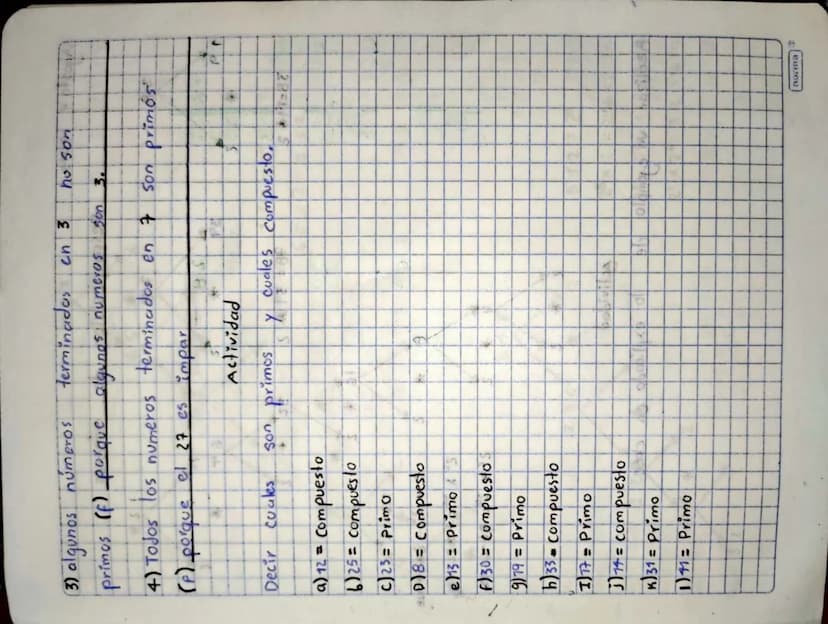 3) algunos números terminados en 3 no son
primos (f) porque algunos numeros son 3.
4) Todos los numeros terminados en 7 son primos
(f) porque el 27 es impar
Actividad
Decir cuales son primos y cuales compuesto.
a) 12 = compuesto
b) 25 = compuesto
c) 23 = Primo
D) 8 = Compuesto
e) 13 = Primo
f) 30 = compuesto
g) 19 = Primo
h) 33 = compuesto
I) 17 = Primo
j) 14 = compuesto
K) 31 = Primo
l) 11 = Primo
norma